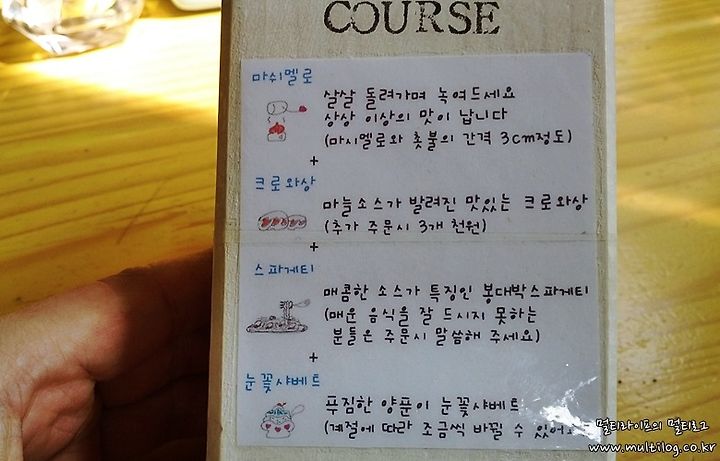 COURSE
마쉬멜로
살살 돌려가며 녹여드세요
상상 이상의 맛이 납니다
(마시멜로와 촛불의 간격 3cm정도)
+
크로와상
마늘소스가 발려진 맛있는 크로와상
(추가 주문시 3개 천원)
+
스파게티
매콤한 소스가 특징인 봉대박스파게티
(매운 음식을 잘 드시지 못하는
분들은 주문시 말씀해 주세요)
+
눈꽃샤베트
푸짐한 양푼이 눈꽃샤베트
(계절에 따라 조금씩 바뀔 수 있어요
멀티라이프의 멀티로그
www.multilog.co.kr